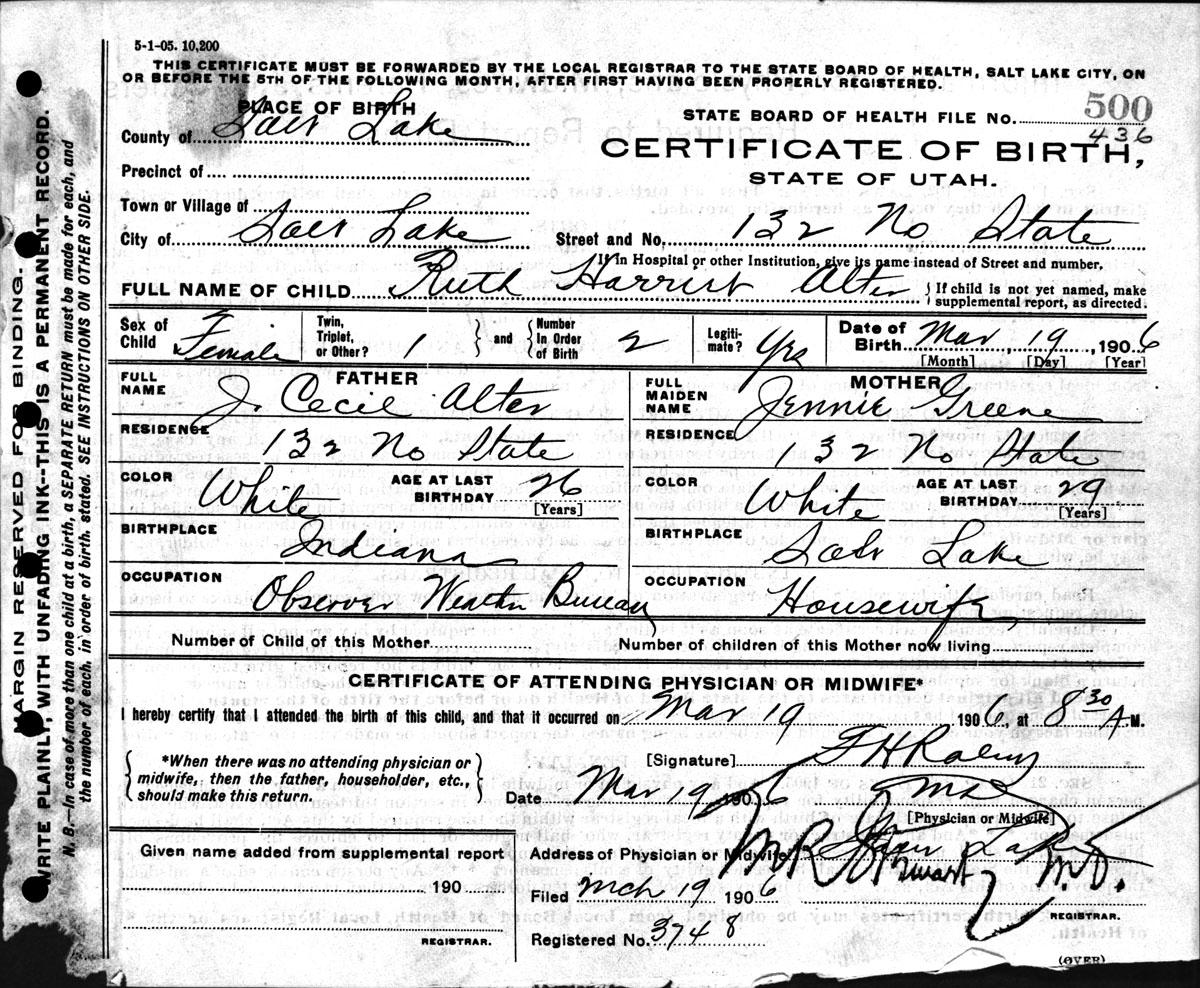 5-1-05. 10,200
THIS CERTIFICATE MUST BE FORWARDED BY THE LOCAL REGISTRAR TO THE STATE BOARD OF HEALTH, SALT LAKE CITY, ON
OR BEFORE THE 5TH OF THE FOLLOWING MONTH, AFTER FIRST HAVING BEEN PROPERLY REGISTERED.
PLACE OF BIRTH
County of Salt Lake
Precinct of
Town or Village of
City of Salt Lake
STATE BOARD OF HEALTH FILE NO. 500
436
CERTIFICATE OF BIRTH,
STATE OF UTAH.
Street and No, 132 No State
If in Hospital or other Institution, give its name instead of Street and number.
FULL NAME OF CHILD Ruth Harriet Alter
{ If child is not yet named, make
supplemental report, as directed.
Sex of Child F Female
Twin, Triplet, or Other? 1 } and { Number In Order of Birth 2
Legitimate? Yes
Date of Birth Mar 19, 1906
[Month] [Day] [Year]
FATHER
FULL NAME J. Cecil Alter
RESIDENCE 132 No State
COLOR White AGE AT LAST BIRTHDAY 26
[Years]
BIRTHPLACE Indiana
OCCUPATION Observer Weather Bureau
MOTHER
FULL MAIDEN NAME Jennie Greene
RESIDENCE 132 No State
COLOR White AGE AT LAST BIRTHDAY 29
[Years]
BIRTHPLACE Salt Lake
OCCUPATION Housewife
Number of Child of this Mother
Number of children of this Mother now living
CERTIFICATE OF ATTENDING PHYSICIAN OR MIDWIFE*
I hereby certify that I attended the birth of this child, and that it occurred on Mar 19 1906, at 8 30 A M.
{ *When there was no attending physician or
midwife, then the father, householder, etc.,
should make this return. }
[Signature]
Date Mar 19 1906
[Physician or Midwife]
Address of Physician or Midwife Salt Lake
Filed Mch 19 1906
M.D.
REGISTRAR.
Registered No. 3748
Given name added from supplemental report
190
REGISTRAR.
(OVER)
MARGIN RESERVED FOR BINDING.
WRITE PLAINLY, WITH UNFADING INK--THIS IS A PERMANENT RECORD.
N. B.—In case of more than one child at a birth, a SEPARATE RETURN must be made for each, and
the number of each, in order of birth, stated. SEE INSTRUCTIONS ON OTHER SIDE.